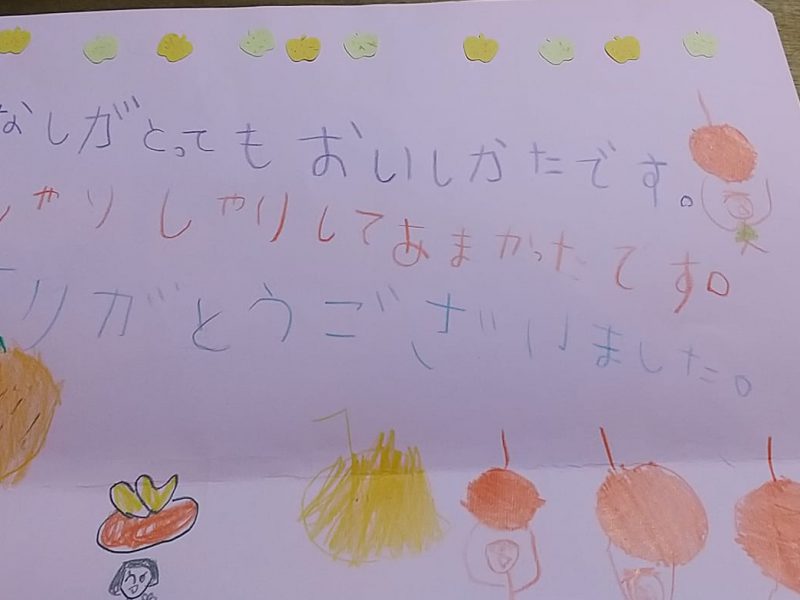 なしがとってもおいしかたです。
しゃりしゃりしてあまかったです。
りがとうございました。